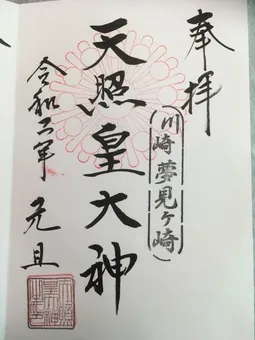 奉拝
(川崎 夢見ヶ崎)
天照皇大神
令和二年 元旦